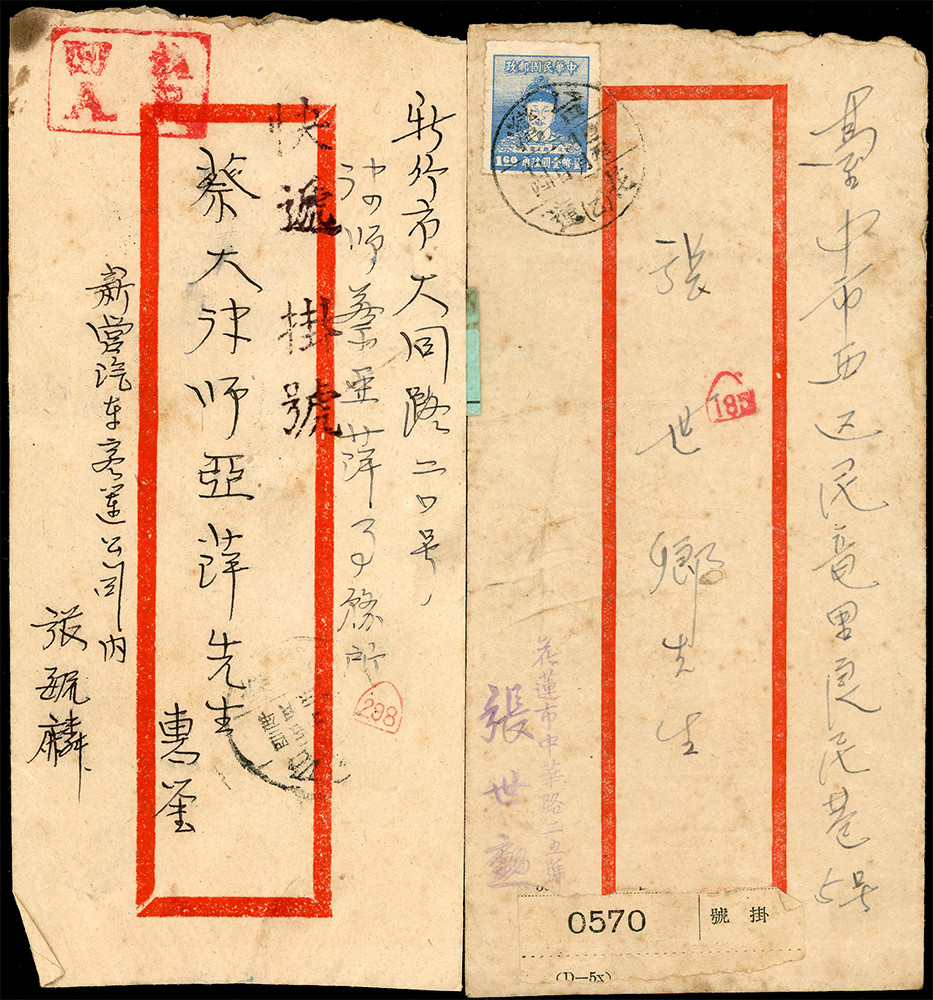 新竹市大同路二〇号
律师蔡亚萍事務所
快遞掛號
蔡大律师亞萍先生
惠鉴
新营汽车客运公司内
張毓麟
298
中華民國郵政
1.60
臺中市西区民竜里良民巷5号
張世鄉先生
185
花蓮市中華路二五號
張世勳
0570
掛號
(D—5x)